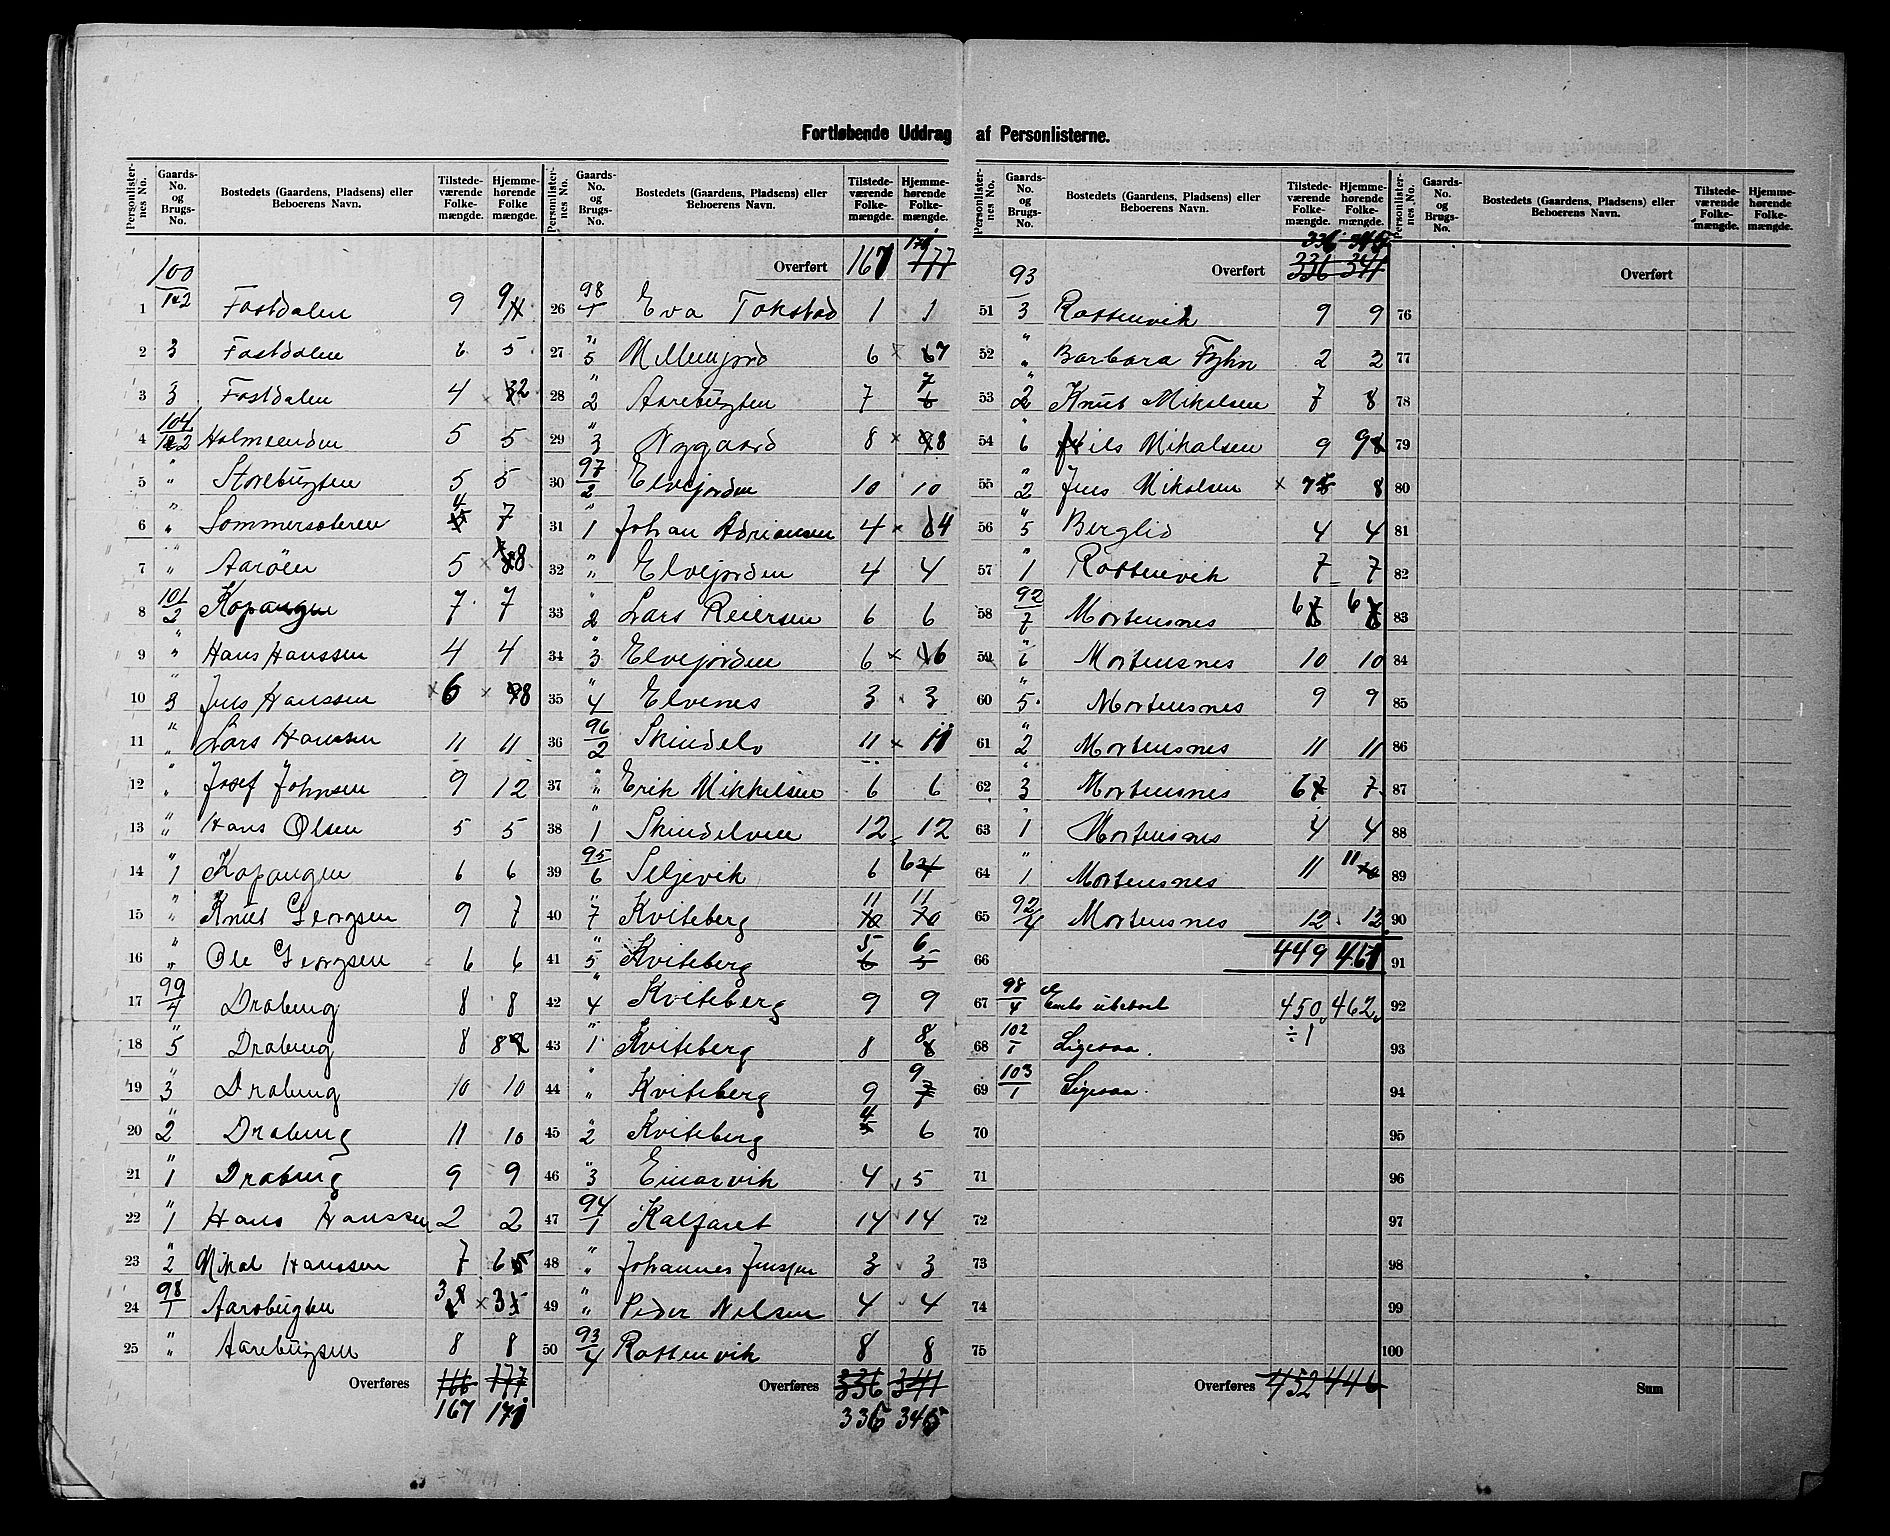 Fortløbende Uddrag af Personlisterne.
Personlister-nes No. Gaards-No. og Brugs-No. Bostedets (Gaardens, Pladsens) eller Beboerens Navn. Tilstede-værende Folke-mængde. Hjemme-hørende Folke mængde.
100
1 1&2 Fastdalen 9 9
2 3 Fastdalen 6 5
3 3 Fastdalen 4 2
104
4 1&2 Holmeenden 5 5
5 " Storebugten 5 5
6 " Sommersæteren 4 7
7 " Aarøen 5 8
8 101/2 Kopangen 7 7
9 " Hans Hanssen 4 4
10 3 Jens Hanssen 6 8
11 " Lars Hanssen 11 11
12 " Josef Johnsen 9 12
13 " Hans Olsen 5 5
14 1 Kopangen 6 6
15 " Knut Georgsen 9 7
16 " Ole Georgsen 6 6
17 99/4 Drabeng 8 8
18 5 Drabeng 8 8
19 3 Drabeng 10 10
20 2 Drabeng 11 10
21 1 Drabeng 9 9
22 1 Hans Hanssen 2 2
23 2 Mikal Hanssen 7 6
24 98/1 Aarøbugten 3 3
25 " Aarebugten 8 8
Overføres 166 177
167 171
Personlister-nes No. Gaards-No. og Brugs-No. Bostedets (Gaardens, Pladsens) eller Beboerens Navn. Tilstede-værende Folke-mængde. Hjemme-hørende Folke-mængde.
Overført 167 177
26 98/1 Eva Tokstad 1 1
27 5 Mellemjord 6 7
28 2 Aarebugten 7 7
29 3 Nygaard 8 8
30 97/2 Elvejorden 10 10
31 1 Johan Adriansen 4 4
32 " Elvejorden 4 4
33 2 Lars Reiersen 6 6
34 3 Elvejorden 6 6
35 4 Elvenes 3 3
36 96/2 Skindelv 11 11
37 " Erik Mikkelsen 6 6
38 1 Skindelven 12 12
39 95/6 Seljevik 6 6
40 7 Kviteberg 11 11
41 5 Kviteberg 5 6
42 4 Kviteberg 9 9
43 1 Kviteberg 8 8
44 " Kviteberg 9 9
45 2 Kviteberg 4 6
46 3 Einarvik 4 5
47 94/1 Kalfaret 14 14
48 " Johannes Jenssen 3 3
49 " Peder Nilsen 4 4
50 93/4 Rottenvik 8 8
Overføres 336 341
335 345
Personlister-nes No. Gaards-No. og Brugs-No. Bostedets (Gaardens, Pladsens) eller Beboerens Navn. Tilstede-værende Folke-mængde. Hjemme-hørende Folke-mængde.
335 345
Overført 336 341
51 93/3 Rottenvik 9 9
52 " Barbara Fyhn 2 2
53 2 Knut Mikalsen 7 8
54 6 Nils Mikalsen 9 9
55 2 Jens Mikalsen 7 8
56 5 Berglid 4 4
57 1 Rottenvik 7 7
58 92/7 Mortensnes 6 6
59 6 Mortensnes 10 10
60 5 Mortensnes 9 9
61 2 Mortensnes 11 11
62 3 Mortensnes 6 7
63 1 Mortensnes 4 4
64 1 Mortensnes 11 11
65 92/4 Mortensnes 12 12
66 449 461
67 98/4 Er ubeboet 450 462
68 102/1 Ligesaa. ÷1
69 103/1 Ligesaa.
70
71
72
73
74
75
Overføres 452 446
Personlister-nes No. Gaards-No. og Brugs-No. Bostedets (Gaardens, Pladsens) eller Beboerens Navn. Tilstede-værende Folke-mængde. Hjemme-hørende Folke-mængde.
Overført
76
77
78
79
80
81
82
83
84
85
86
87
88
89
90
91
92
93
94
95
96
97
98
99
100
Sum